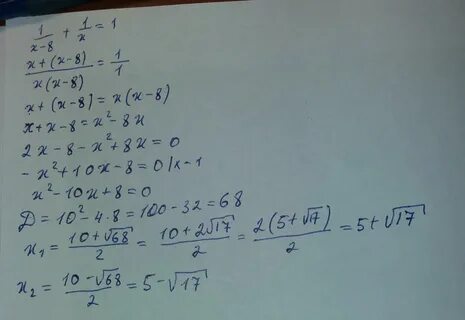 1/(x-8) + 1/x = 1
(x+(x-8))/(x(x-8)) = 1/1
x+(x-8)=x(x-8)
x+x-8=x²-8x
2x-8-x²+8x=0
-x²+10x-8=0/x-1
x²-10x+8=0
D=10²-4·8=100-32=68
x₁=(10+√68)/2=(10+2√17)/2=(2(5+√17))/2=5+√17
x₂=(10-√68)/2=5-√17